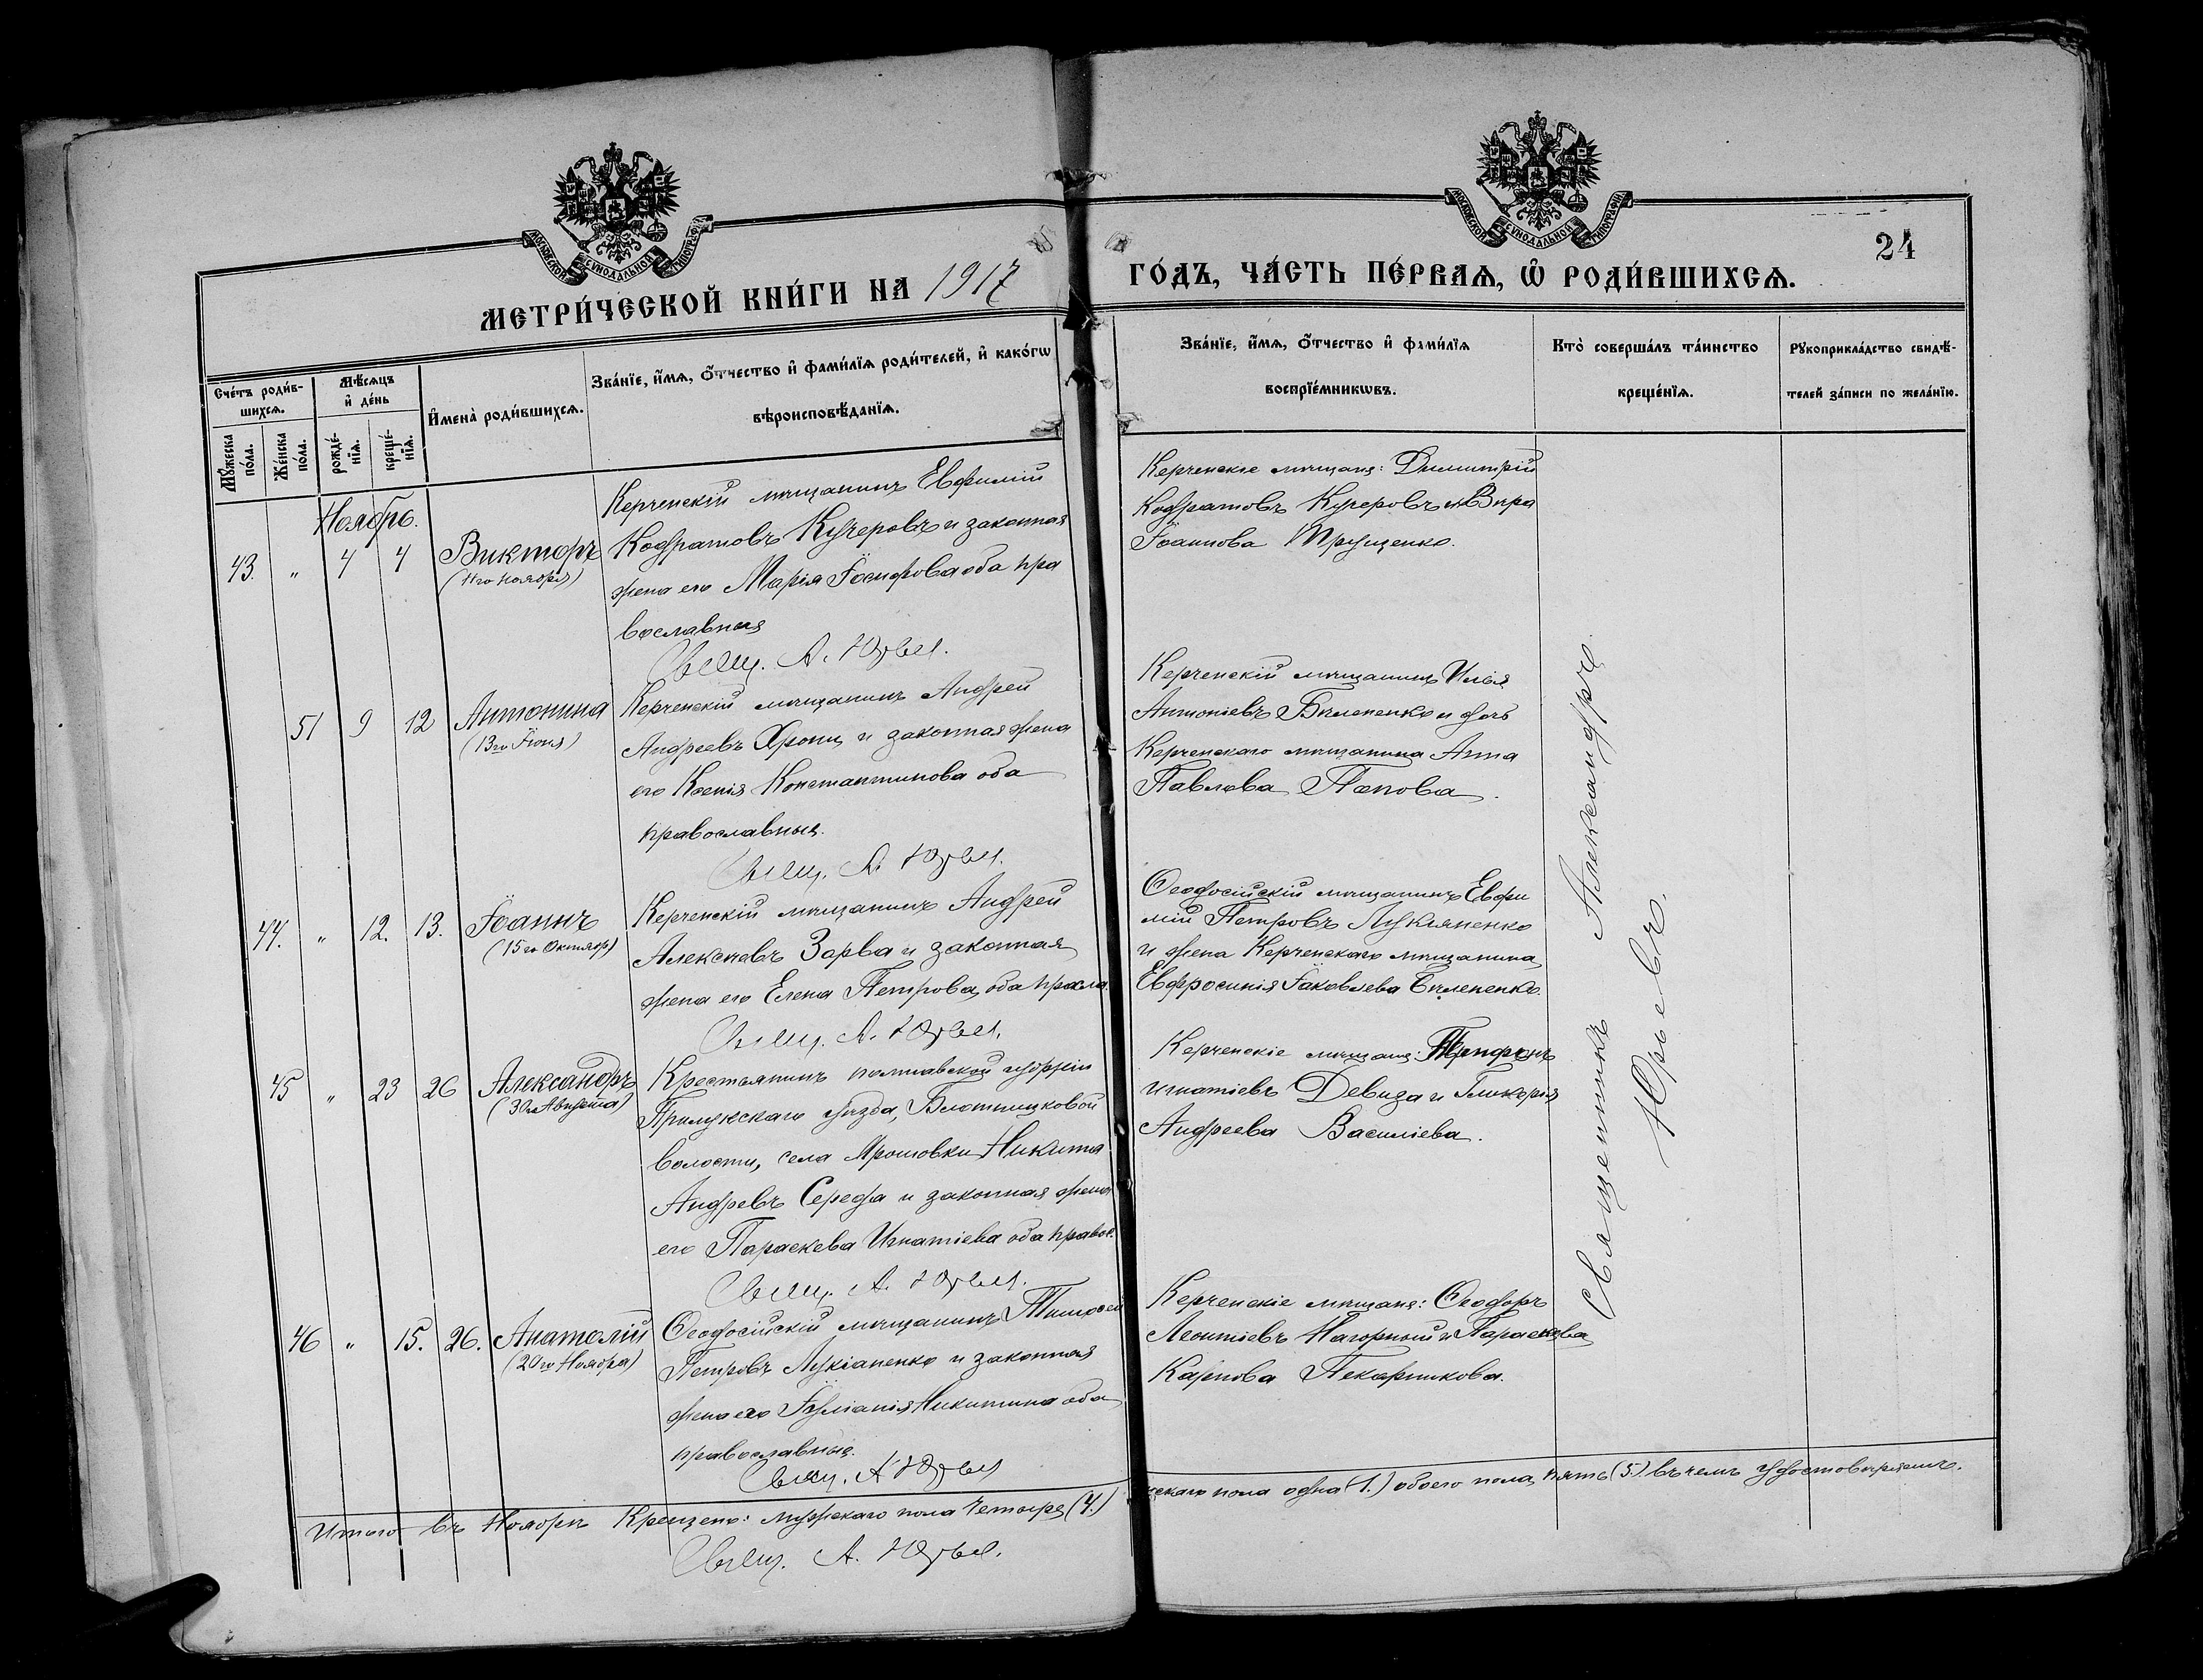 МОСКОВСКОЙ СѴНОДАЛЬНОЙ ТИПОГРАФІИ
МОСКОВСКОЙ СѴНОДАЛЬНОЙ ТИПОГРАФІИ
24
МЕТРИ́ЧЕСКОЙ КНИ́ГИ НА 1917 ГО́ДЪ, ЧА́СТЬ ПЕ́РВАѦ, Ѡ҆ РОДИ́ВШИХСѦ.
Сче́тъ роди́в-
шихсѧ.
Мꙋ́жеска по́ла.
Же́нска по́ла.
Мѣ́сѧцъ
и҆ де́нь
рожде́-
нїѧ.
креще́-
нїѧ.
И҆мена̀ роди́вшихсѧ.
Зва́нїе, и҆́мѧ, ѻ҆́тчество и҆ фами́лїѧ роди́телей, и҆ како́гѡ
вѣроисповѣ́данїѧ.
Зва́нїе, и҆́мѧ, ѻ҆́тчество и҆ фами́лїѧ
воспрїе́мникѡвъ.
Кто̀ соверша́лъ та́инство
креще́нїѧ.
Рꙋкоприкла́дство свидѣ́-
телей за́писи по жела́нїю.
Ноябрь.
43. " 4 4 Викторъ
(11го ноября)
Керченскій мѣщанинъ Евфимій
Кодратовъ Кучеровъ и законная
жена его Марія Іосифова оба пра
вославныя
Свящ. А. Юрьев.
Керченскіе мѣщане: Димитрій
Кодратовъ Кучеровъ и Вѣра
Іоаннова Трущенко.
51 9 12 Антонина
(13го Іюня)
Керченскій мѣщанинъ Андрей
Андреевъ Хронц и законная жена
его Ксенія Константинова оба
православныя.
Свящ. А. Юрьев.
Керченскій мѣщанинъ Илья
Антоніевъ Бѣлененко и дочь
Керченскаго мѣщанина Анна
Павлова Попова.
44. " 12. 13. Іоаннъ
(15го Октябр)
Керченскій мѣщанинъ Андрей
Алексѣевъ Зарва и законная
жена его Елена Петрова, оба правла.
Свящ. А. Юрьев.
Ѳеодосійскій мѣщанинъ Евфи
мій Петровъ Лукіяненко
и жена Керченскаго мѣщанина
Евфросинія Іаковлева Бѣлененко.
45 " 23 26 Александръ
(30го Августа)
Крестьянинъ полтавской губерніи
Прилукскаго уѣзда,
волости, села Ярошовки Никита
Андревъ Середа и законная жена
его Параскева Игнатіева оба правос.
Свящ. А. Юрьев.
Керченскіе мѣщане: Трифонъ
Игнатіевъ Девида и Гликерія
Андреева Василіева.
46 " 15. 26. Анатолій
(20го Ноября)
Ѳеодосійскій мѣщанинъ Тимофей
Петровъ Лукіаненко и законная
жена его Іуліанія Никитина оба
православныя.
Свящ. А Юрьев
Керченскіе мѣщане: Ѳеодоръ
Леонтіевъ Нагорный и Параскева
Карпова Пекарникова.
Священникъ Александръ
Юрьевъ.
Итого въ Ноябрѣ Крещено: мужскаго пола Четыре (4.) нскаго пола одна (1.) обоего пола пять (5.) въ чемъ удостовѣряемъ.
Свящ. А. Юрьев.